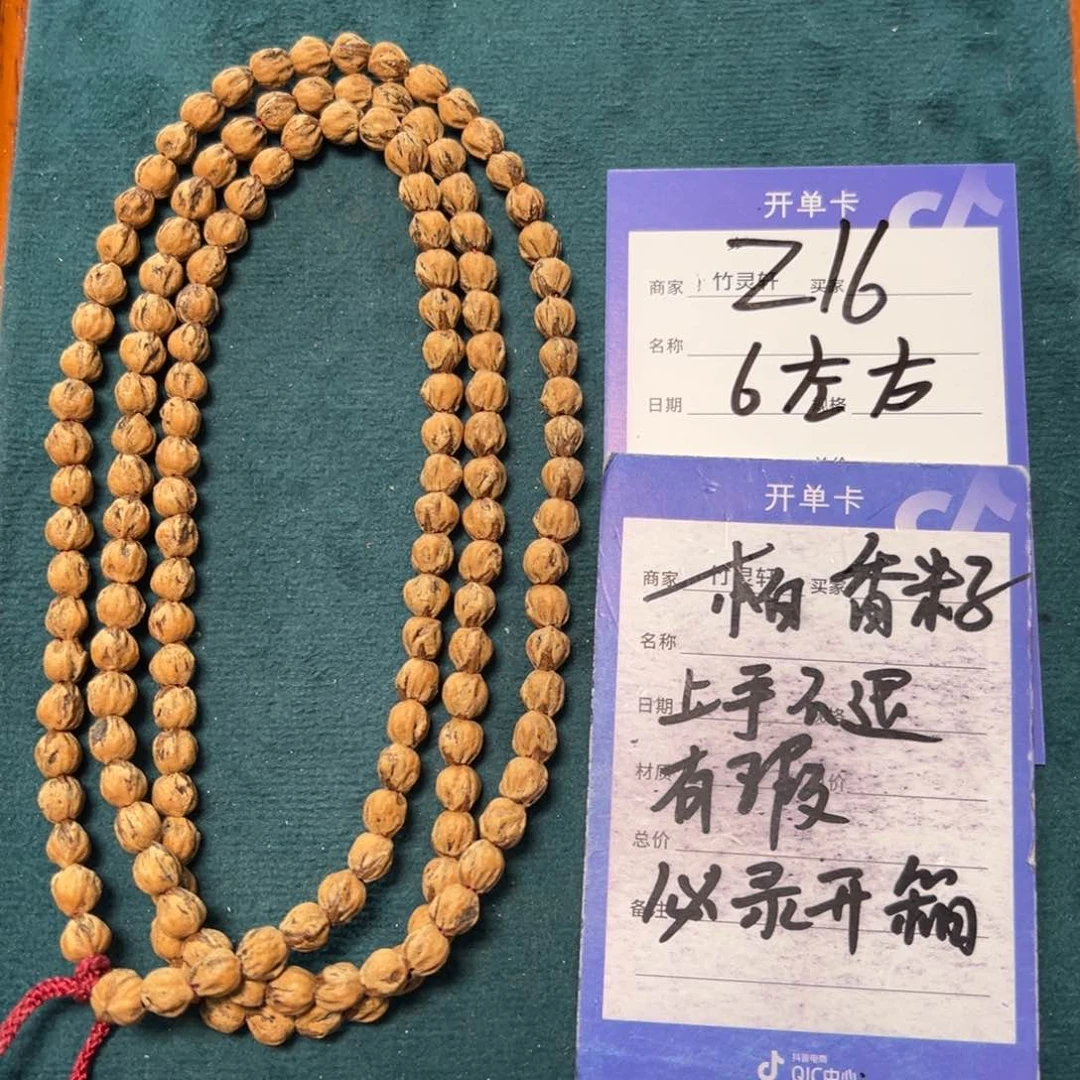 开单卡
Z16
商家 竹灵轩 买家
名称
6左右
日期 规格
开单卡
商家 竹灵轩 买家
柏香籽
名称
上手不退
日期
有瑕
材质 价
总价
必录开箱
备注
抖音电商
QIC中心